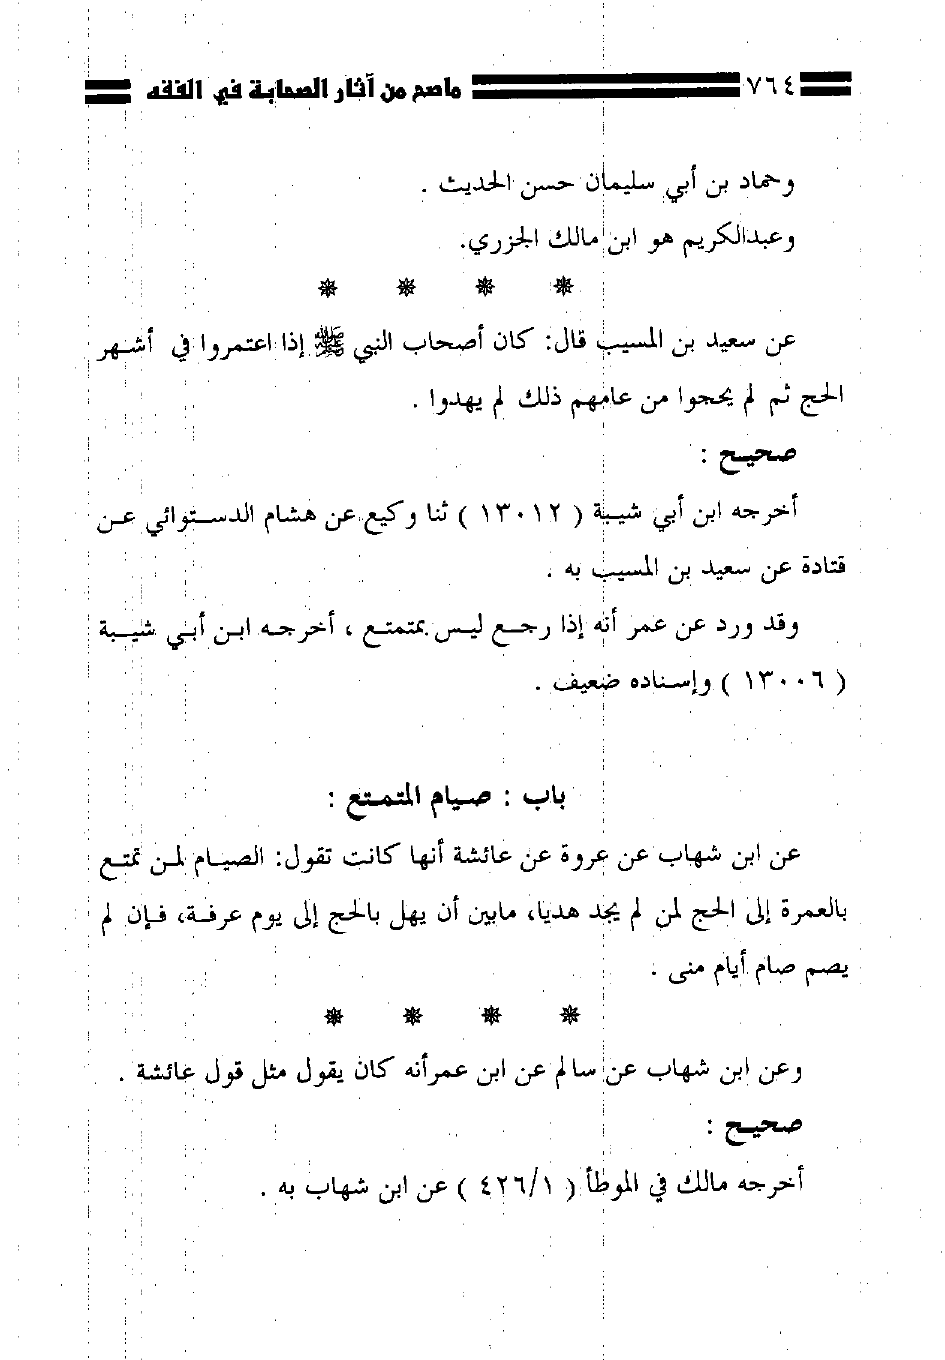 ٧٦٤ ماصح من آثار الصحابة في الفقه
وحماد بن أبي سليمان حسن الحديث .
وعبدالكريم هو ابن مالك الجزري.
عن سعيد بن المسيب قال: كان أصحاب النبي ﷺ إذا اعتمروا في أشهر
الحج ثم لم يحجوا من عامهم ذلك لم يهدوا .
صحيح :
أخرجه ابن أبي شيبة ( ١٣٠١٢ ) ثنا وكيع عن هشام الدستوائي عن
قتادة عن سعيد بن المسيب به .
وقد ورد عن عمر أنه إذا رجع ليس بمتمتع ، أخرجه ابن أبي شيبة
( ١٣٠٠٦ ) وإسناده ضعيف .
باب : صيام المتمتع :
عن ابن شهاب عن عروة عن عائشة أنها كانت تقول: الصيام لمن تمتع
بالعمرة إلى الحج لمن لم يجد هديا، مابين أن يهل بالحج إلى يوم عرفة، فإن لم
يصم صام أيام منى .
وعن ابن شهاب عن سالم عن ابن عمرأنه كان يقول مثل قول عائشة .
صحيح :
أخرجه مالك في الموطأ ( ٤٢٦/١ ) عن ابن شهاب به .